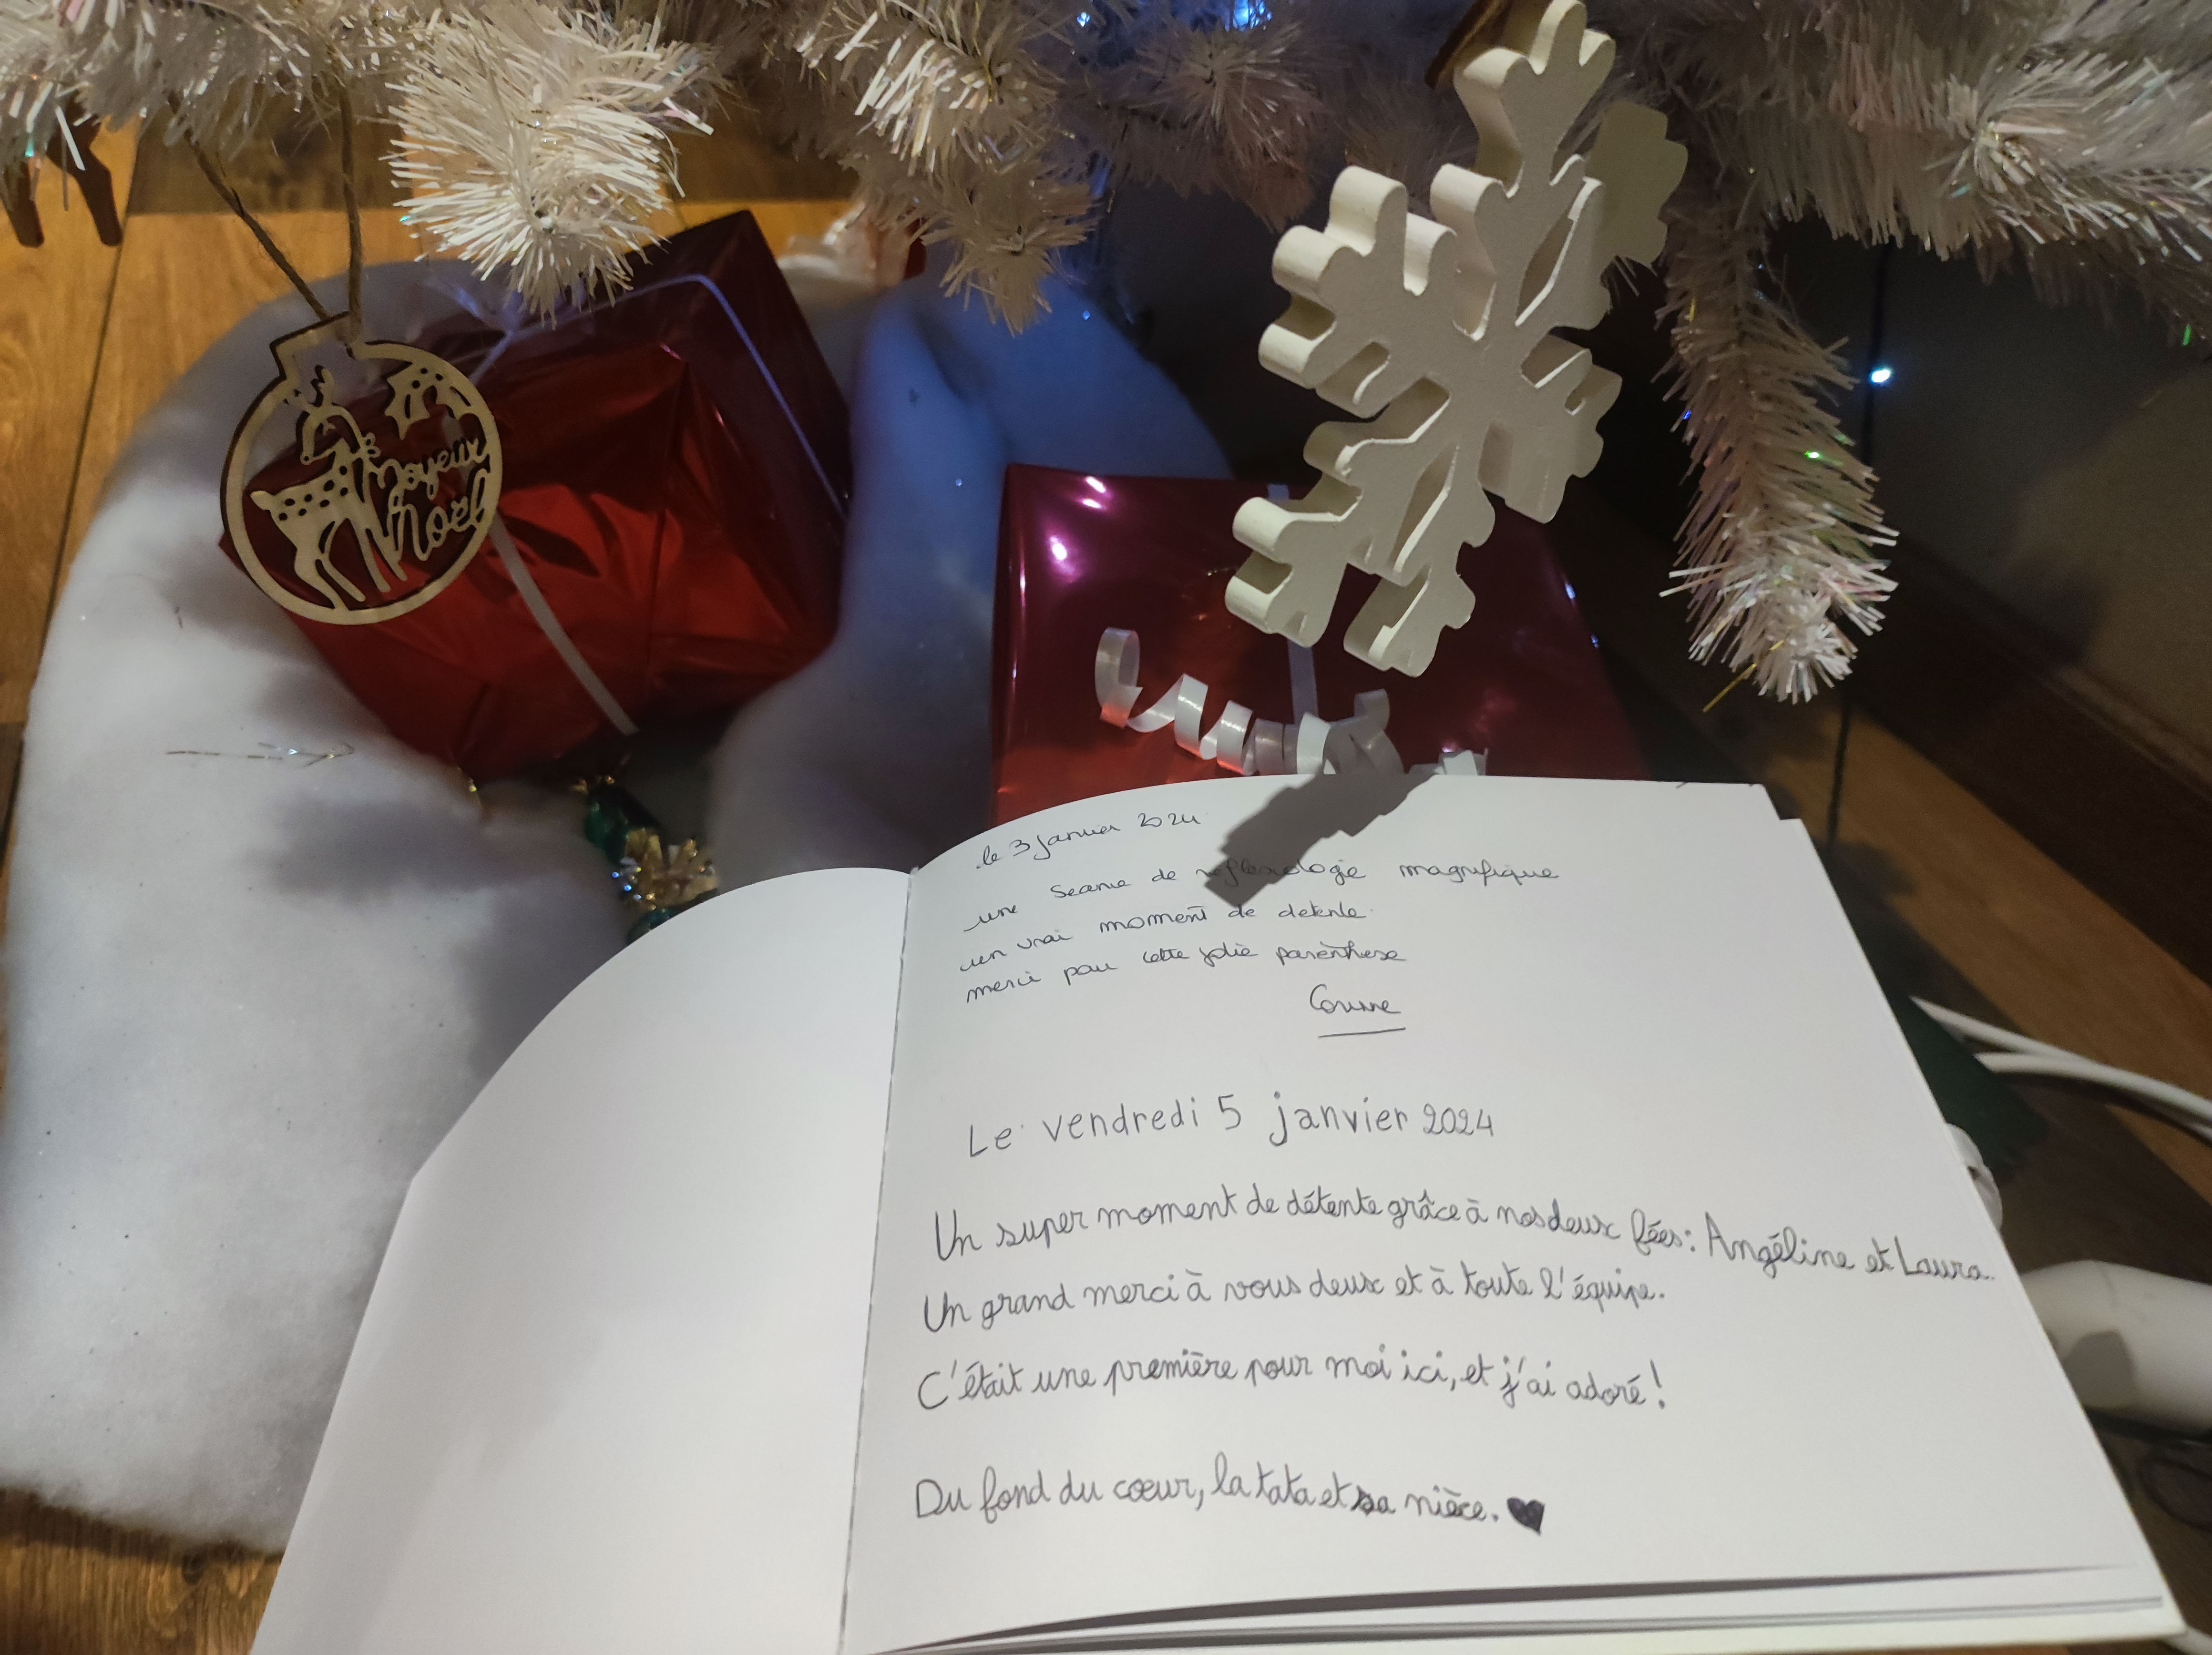 Joyeux
Noël
le 3 janvier 2024
une seance de reflexologie magnifique
un vrai moment de detente
merci pour cette jolie parenthese
Corinne
Le vendredi 5 janvier 2024
Un super moment de détente grâce à nos deux fées: Angéline et Laura.
Un grand merci à vous deux et à toute l'équipe.
C'était une première pour moi ici, et j'ai adoré!
Du fond du cœur, la tata et sa nièce. ♥